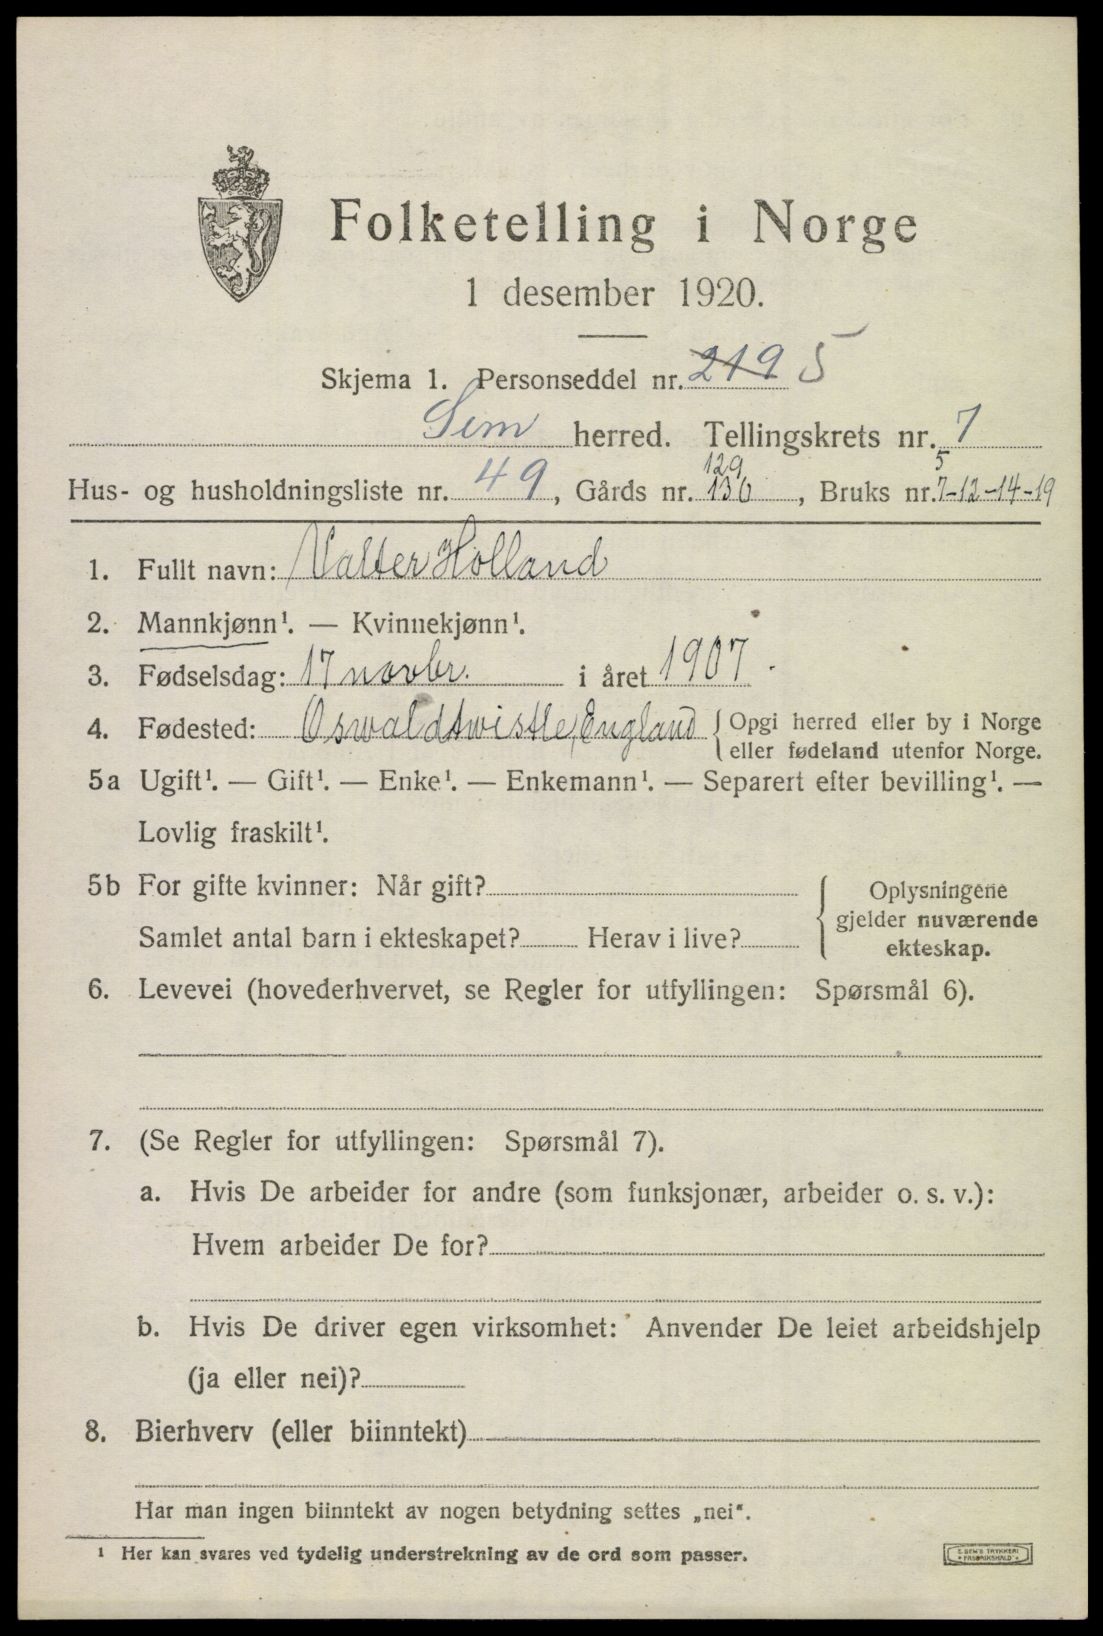 Folketelling i Norge
1 desember 1920.
Skjema 1. Personseddel nr. 219 5
Sem herred. Tellingskrets nr. 7
129 5
Hus- og husholdningsliste nr. 49, Gårds nr. 130, Bruks nr. 7-12-14-19
1. Fullt navn: Valter Holland
2. Mannkjønn¹. — Kvinnekjønn¹.
3. Fødselsdag: 17 novbr. i året 1907.
4. Fødested: Oswaldtwistle, England { Opgi herred eller by i Norge
eller fødeland utenfor Norge.
5a Ugift¹. — Gift¹. — Enke¹. — Enkemann¹. — Separert efter bevilling¹. —
Lovlig fraskilt¹.
5b For gifte kvinner: Når gift?
Samlet antal barn i ekteskapet? Herav i live?
{ Oplysningene
gjelder nuværende
ekteskap.
6. Levevei (hovederhvervet, se Regler for utfyllingen: Spørsmål 6).
7. (Se Regler for utfyllingen: Spørsmål 7).
a. Hvis De arbeider for andre (som funksjonær, arbeider o. s. v.):
Hvem arbeider De for?
b. Hvis De driver egen virksomhet: Anvender De leiet arbeidshjelp
(ja eller nei)?
8. Bierhverv (eller biinntekt)
Har man ingen biinntekt av nogen betydning settes „nei“.
¹ Her kan svares ved tydelig understrekning av de ord som passer.